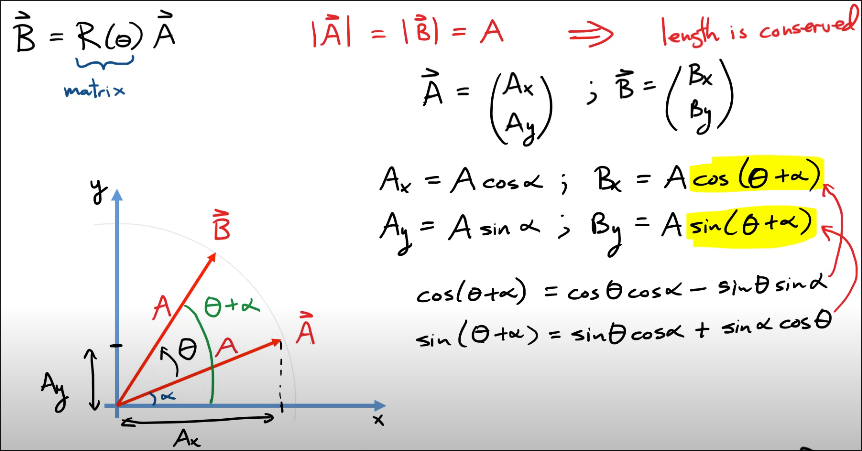 B⃗ = R(θ) A⃗
matrix
|A⃗| = |B⃗| = A ⇒ length is conserved
A⃗ = (Ax Ay) ; B⃗ = (Bx By)
Ax = A cosα ; Bx = A cos(θ+α)
Ay = A sinα ; By = A sin(θ+α)
cos(θ+α) = cosθcosα − sinθsinα
sin(θ+α) = sinθcosα + sinαcosθ
y
B⃗
A
θ+α
θ
A
A⃗
α
Ay
x
Ax